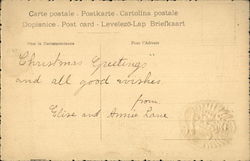 Carte postale - Postkarte - Cartolina postale
Dopisnice - Post card - Levelező-Lap Briefkaart
Pour la Correspondance Pour l'Adresse
Christmas Greetings
and all good wishes
from
Elise and Annie Lane